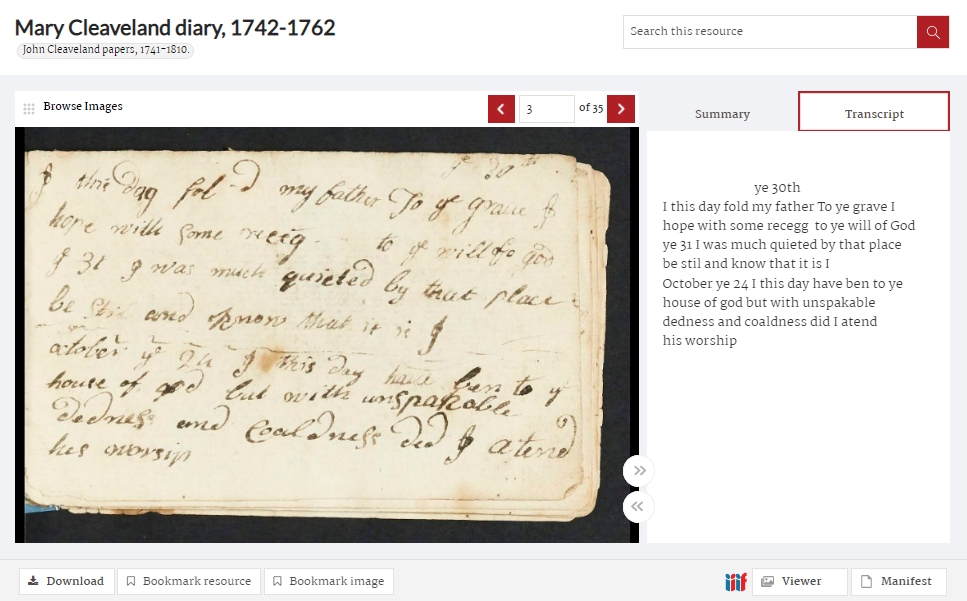 Mary Cleaveland diary, 1742-1762
John Cleaveland papers, 1741-1810.
Search this resource
Browse Images
3
of 35
Summary
Transcript
ye 30th
I this day fol-d my father To ye grave I
hope with some receeg to ye will fo god
ye 31 I was much quieted by that place
be stil and know that it is I
october ye 24 I this day have ben to ye
house of god but with unspakable
dedness and Coaldness ded I atend
his worsip
ye 30th
I this day fold my father To ye grave I
hope with some recegg to ye will of God
ye 31 I was much quieted by that place
be stil and know that it is I
October ye 24 I this day have ben to ye
house of god but with unspakable
dedness and coaldness did I atend
his worship
Download
Bookmark resource
Bookmark image
iiif
Viewer
Manifest